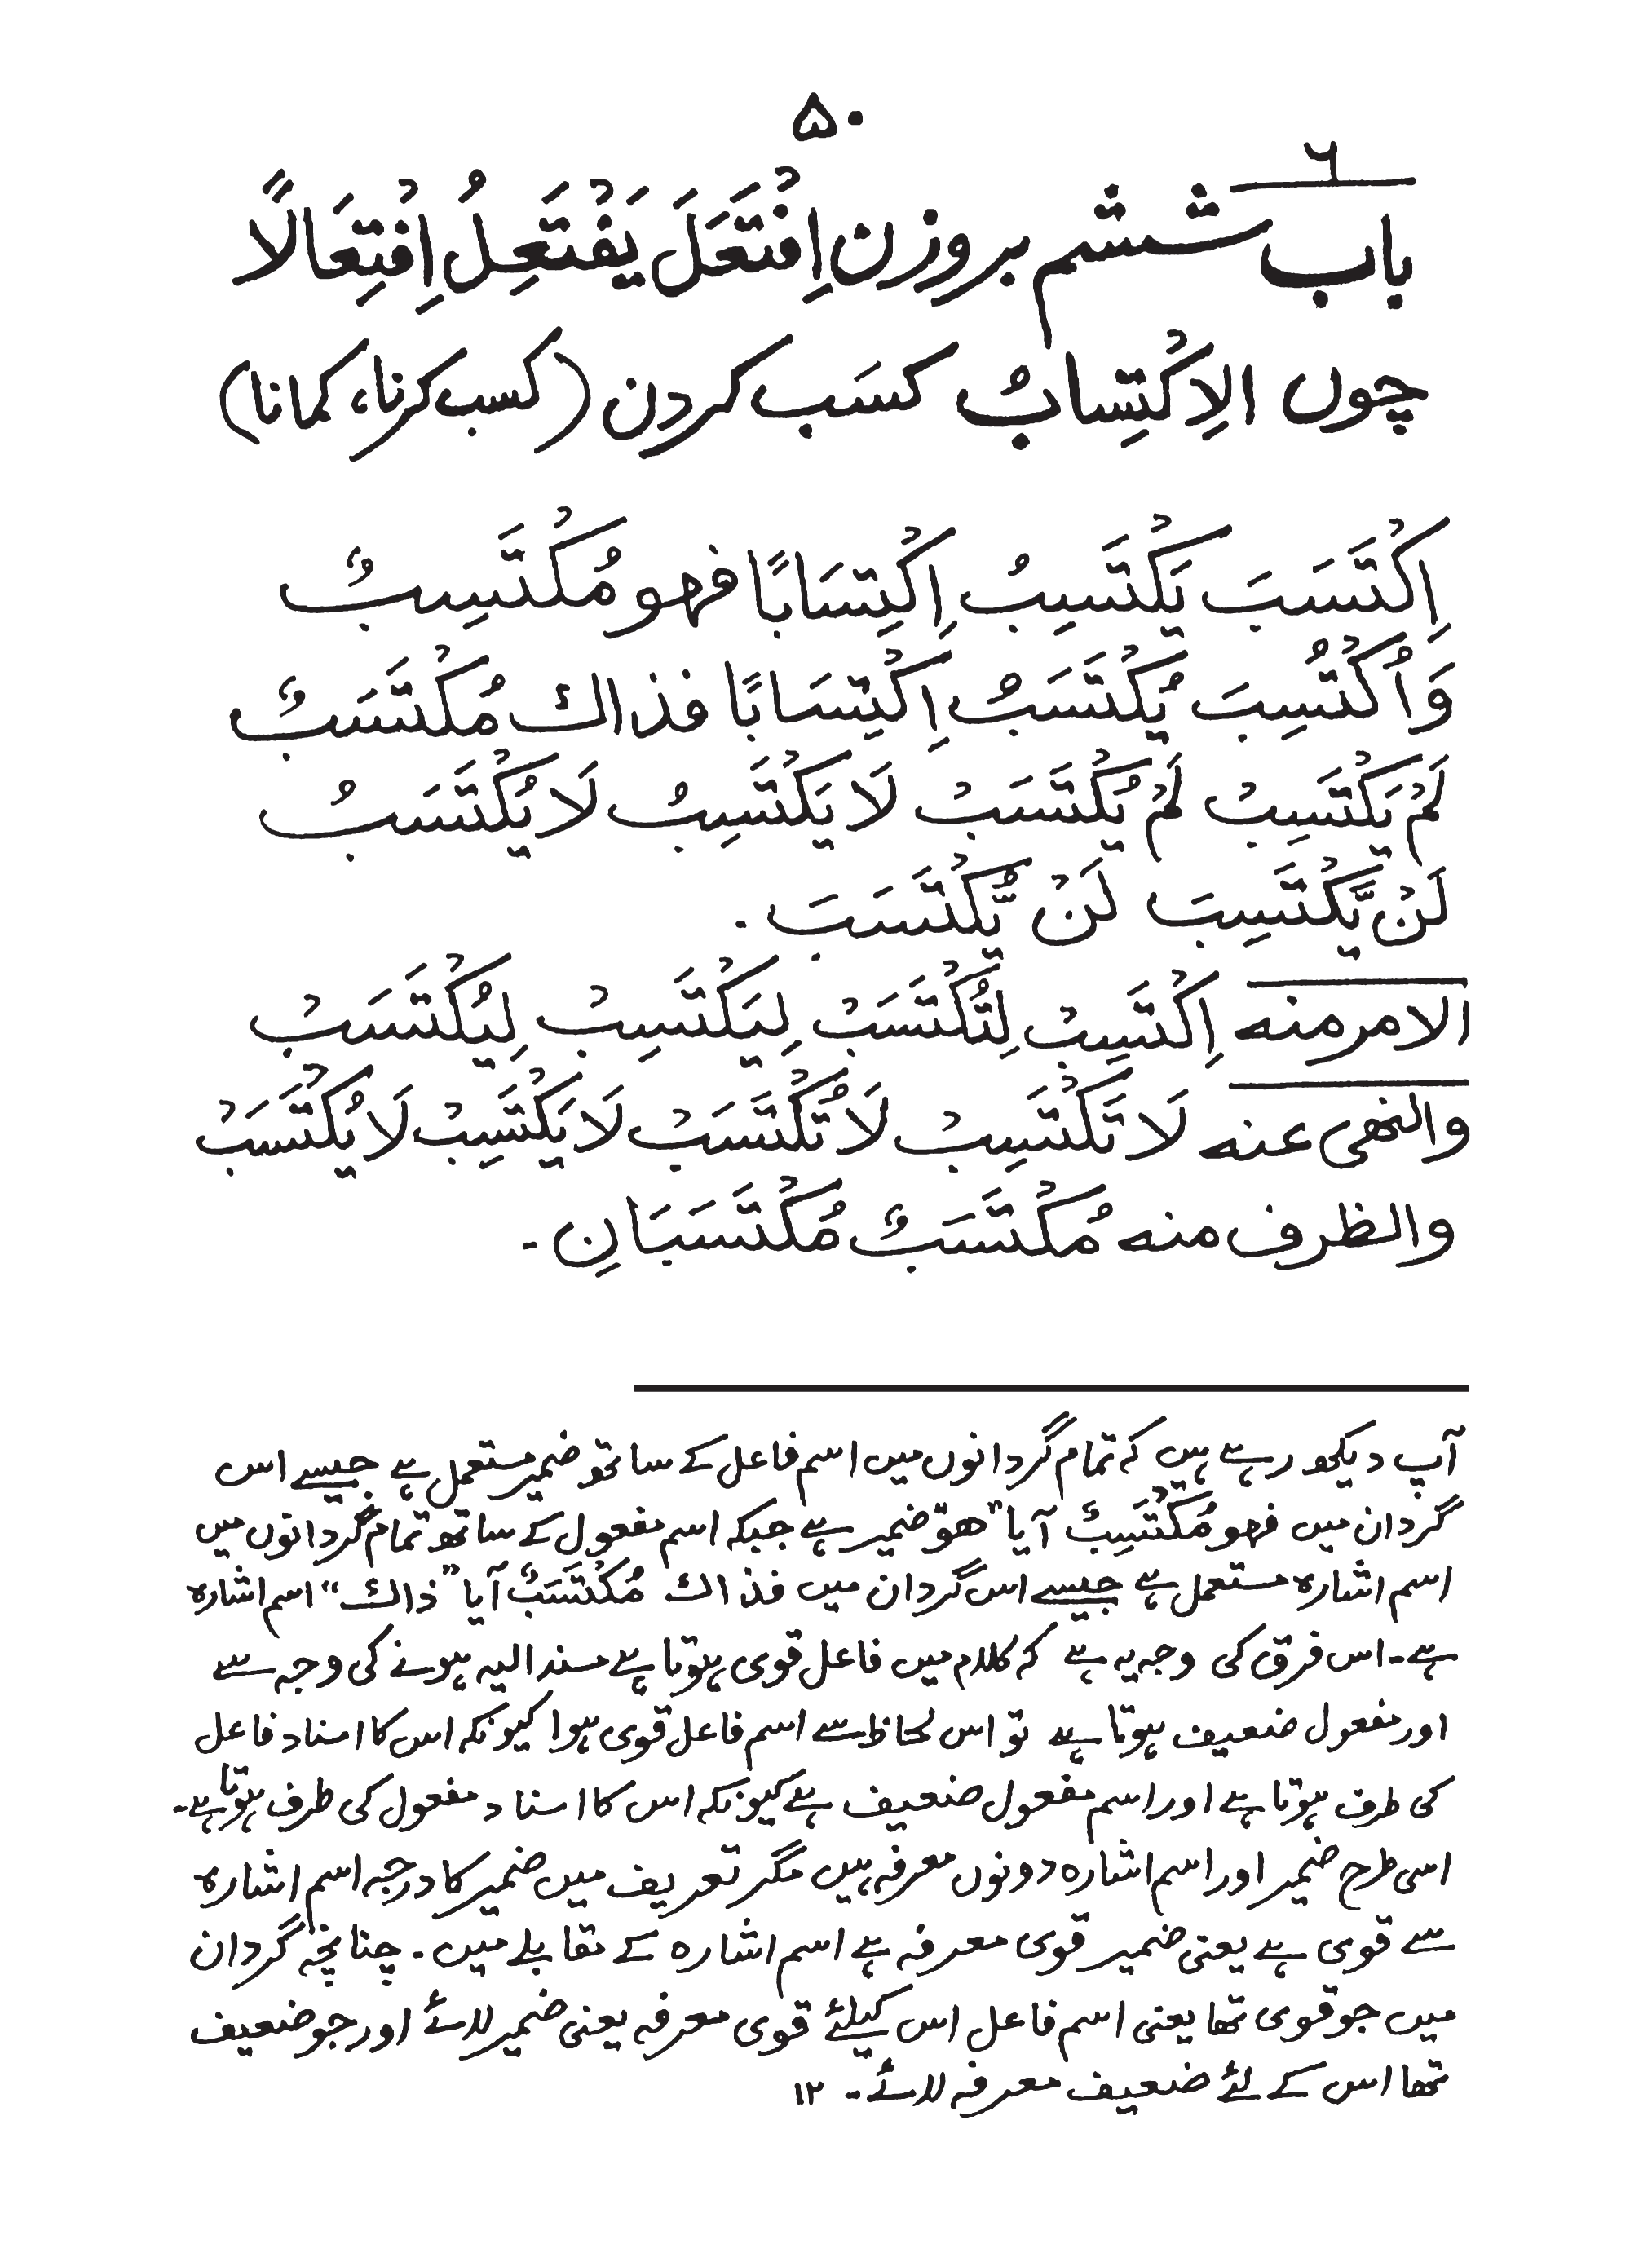 ۵۰
۶
باب ششم بروزن اِفْتَعَلَ يَفْتَعِلُ اِفْتِعَالًا
چوں الِاكْتِسَابُ کسَب کردن (کسب کرنا، کمانا)
اِكْتَسَبَ يَكْتَسِبُ اِكْتِسَابًا فهو مُكْتَسِبٌ
وَاُكْتُسِبَ يُكْتَسَبُ اِكْتِسَابًا فذاك مُكْتَسَبٌ
لَمْ يَكْتَسِبْ لَمْ يُكْتَسَبْ لَا يَكْتَسِبُ لَا يُكْتَسَبُ
لَنْ يَّكْتَسِبَ لَنْ يُّكْتَسَبَ .
الامر منه اِكْتَسِبْ لِتُكْتَسَبْ لِيَكْتَسِبْ لِيُكْتَسَبْ
والنهى عنه لَا تَكْتَسِبْ لَا تُكْتَسَبْ لَا يَكْتَسِبْ لَا يُكْتَسَبْ
والظرف منه مُكْتَسَبٌ مُكْتَسَبَانِ ۔
آپ دیکھ رہے ہیں کہ تمام گردانوں میں اسم فاعل کے ساتھ ضمیر مستعمل ہے جیسے اس
گردان میں فہو مُكْتَسِبٌ آیا "ھو" ضمیر ہے جبکہ اسم مفعول کے ساتھ تمام گردانوں میں
اسم اشارہ مستعمل ہے جیسے اس گردان میں فذاك مُكْتَسَبٌ آیا "ذاك" اسم اشارہ
ہے۔ اس فرق کی وجہ یہ ہے کہ کلام میں فاعل قوی ہوتا ہے مسند الیہ ہونے کی وجہ سے
اور مفعول ضعیف ہوتا ہے تو اس لحاظ سے اسم فاعل قوی ہوا کیونکہ اس کا اسناد فاعل
کی طرف ہوتا ہے اور اسم مفعول ضعیف ہے کیونکہ اس کا اسناد مفعول کی طرف ہوتا ہے۔
اسی طرح ضمیر اور اسم اشارہ دونوں معرفہ ہیں مگر تعریف میں ضمیر کا درجہ اسم اشارہ
سے قوی ہے یعنی ضمیر قوی معرفہ ہے اسم اشارہ کے مقابلے میں ۔ چنانچہ گردان
میں جو قوی تھا یعنی اسم فاعل اس کیلئے قوی معرفہ یعنی ضمیر لائے اور جو ضعیف
تھا اس کے لئے ضعیف معرفہ لائے ۔ ۱۲